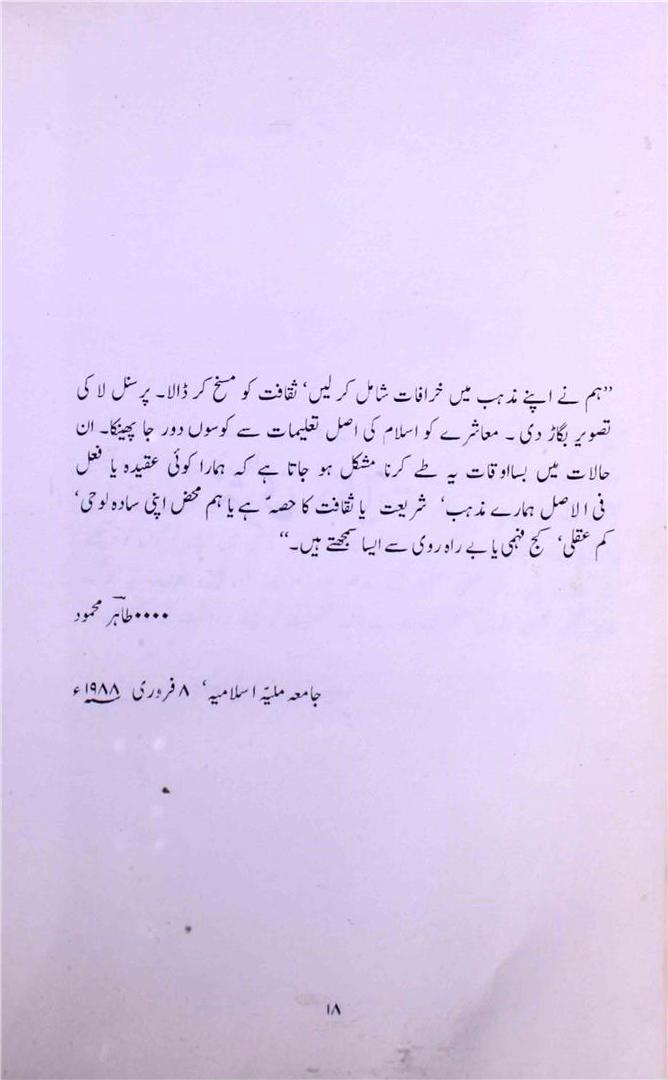 ”ہم نے اپنے مذہب میں خرافات شامل کر لیں‘ ثقافت کو مسخ کر ڈالا۔ پرسنل لا کی
تصویر بگاڑ دی ۔ معاشرے کو اسلام کی اصل تعلیمات سے کوسوں دور جا پھینکا۔ ان
حالات میں بسااوقات یہ طے کرنا مشکل ہو جاتا ہے کہ ہمارا کوئی عقیدہ یا فعل
فی الاصل ہمارے مذہب‘ شریعت یا ثقافت کا حصہّ ہے یا ہم محض اپنی سادہ لوحی‘
کم عقلی‘ کج فہمی یا بے راہ روی سے ایسا سمجھتے ہیں۔“
۰۰۰۰ طاہر محمود
جامعہ ملیّہ اسلامیہ‘ ۸ فروری ۱۹۸۸ء
۱۸